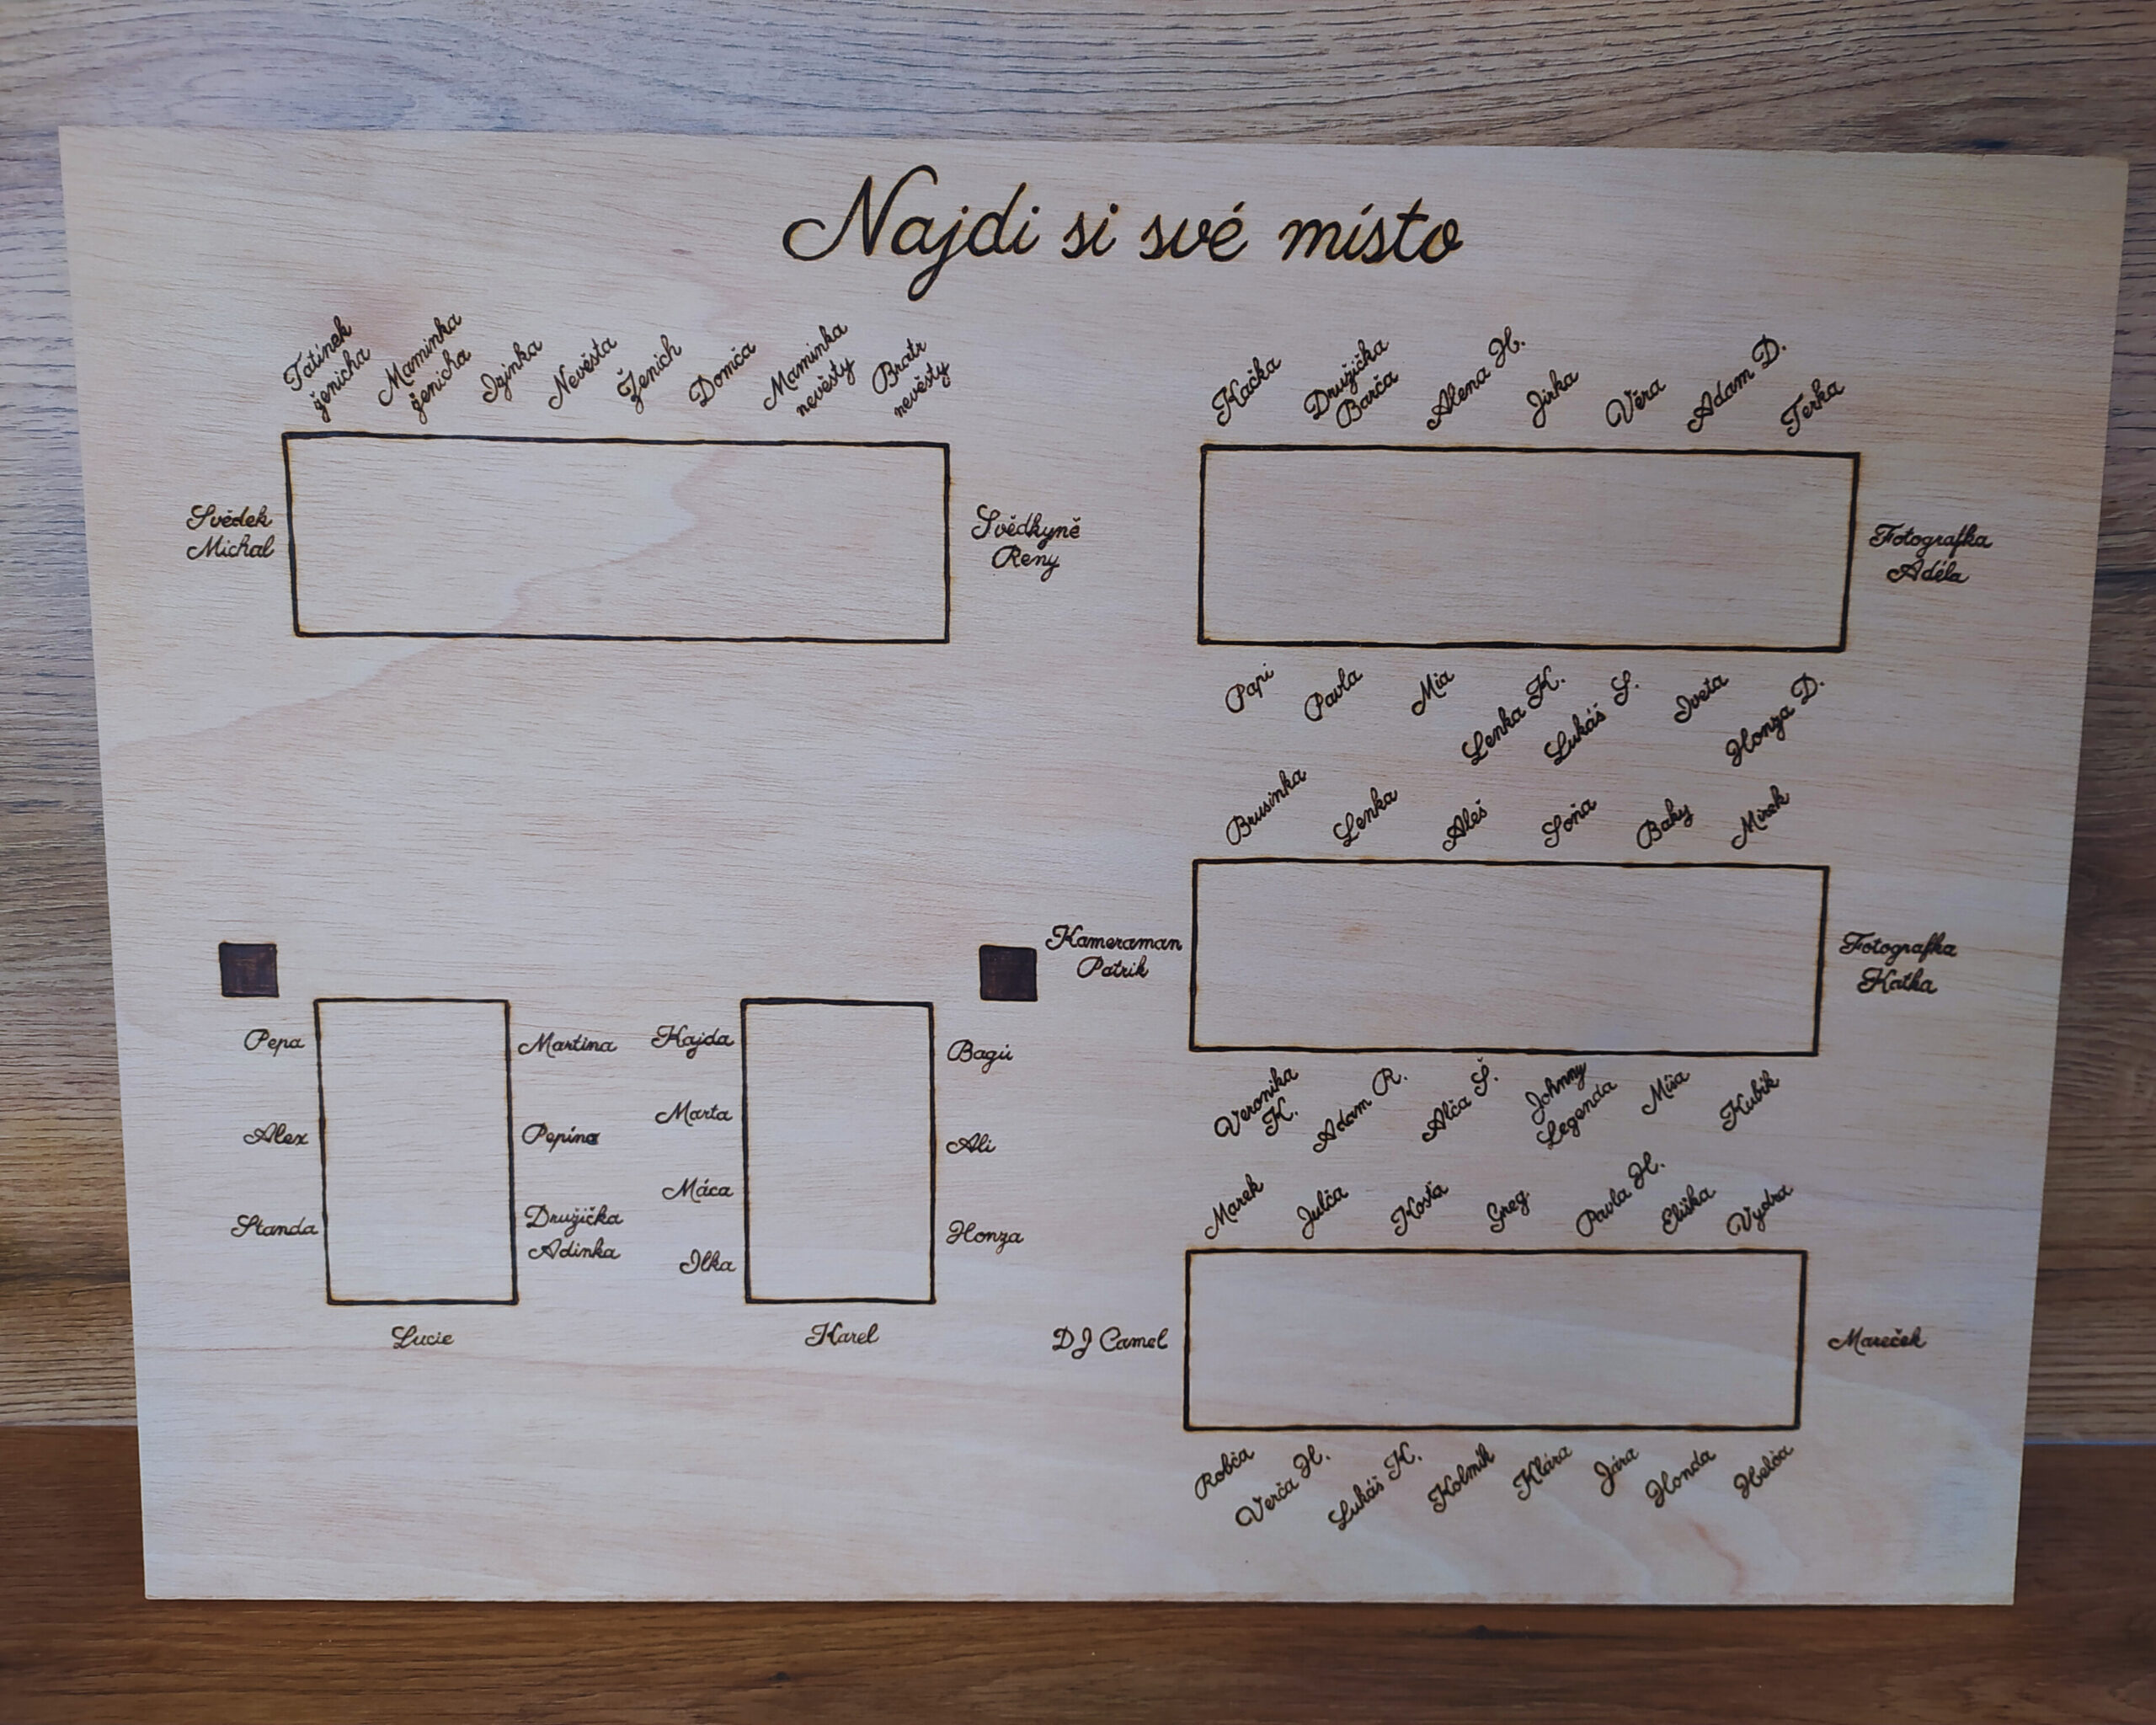 Najdi si své místo
Tatínek
ženicha
Maminka
ženicha
Izinka
Nevěsta
Ženich
Domča
Maminka
nevěsty
Bratr
nevěsty
Svědek
Michal
Svědkyně
Reny
Kačka
Družička
Barča
Alena H.
Jirka
Věra
Adam D.
Terka
Fotografka
Adéla
Papi
Pavla
Mia
Lenka K.
Lukáš S.
Iveta
Honza D.
Brusinka
Lenka
Aleš
Soňa
Baky
Mirek
Kameraman
Patrik
Fotografka
Katka
Veronika
K.
Adam R.
Alča Š.
Johnny
Legenda
Míša
Kubík
Pepa
Alex
Standa
Martina
Pepína
Družička
Adinka
Lucie
Kajda
Marta
Máca
Ilka
Bagú
Ali
Honza
Karel
Marek
Julča
Kosťa
Greg
Pavla H.
Eliška
Vydra
DJ Camel
Mareček
Robča
Verča H.
Lukáš K.
Kolmík
Klára
Jára
Honda
Helča